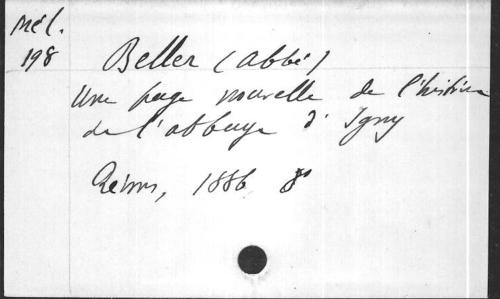 Mél.
198
Beller (abbé)
Une page nouvelle de l'histoire
de l'abbaye d'Igny
Reims, 1886 8°